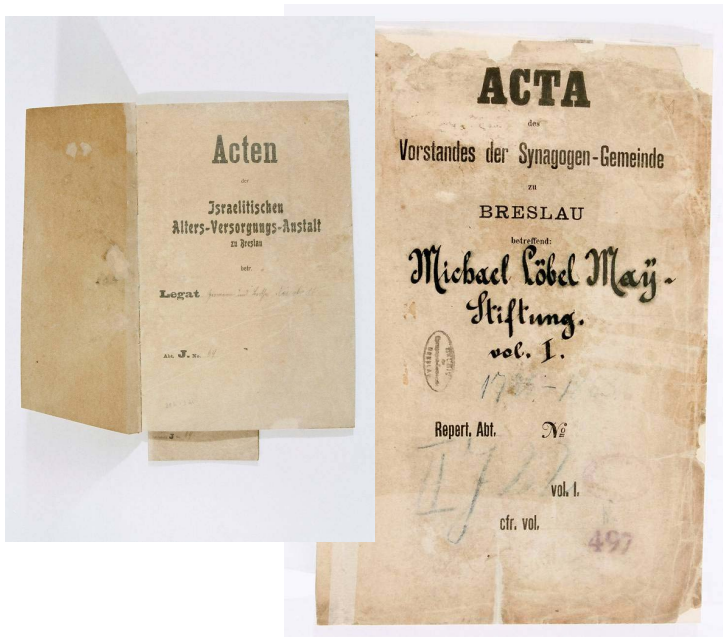 Acten
der
Israelitischen
Alters-Versorgungs-Anstalt
zu Breslau
betr.
Legat
Abt. J. No. 11
J. 11
ACTA
des
Vorstandes der Synagogen-Gemeinde
zu
BRESLAU
betreffend:
Michael Löbel Maÿ-
Stiftung.
vol. I.
Repert. Abt. No
vol. I.
cfr. vol.
497